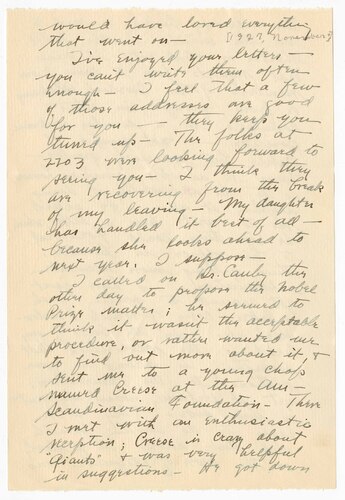 would have loved everything
that went on —
[1927, November]
I've enjoyed your letters —
you can't write them often
enough — I feel that a few
of those addresses are good
for you — they keep you
tuned up — The folks at
2703 were looking forward to
seeing you — I think they
are recovering from the break
of my leaving — My daughter
has handled it best of all —
because she looks ahead to
next year, I suppose —
I called on Dr. Canby the
other day to propose the Nobel
Prize matter; he seemed to
think it wasn't the acceptable
procedure, or rather wanted me
to find out more about it, &
sent me to a young chap
named Creese at the Am —
Scandinavian Foundation — There
I met with an enthusiastic
reception; Creese is crazy about
"Giants" & was very helpful
in suggestions — He got down